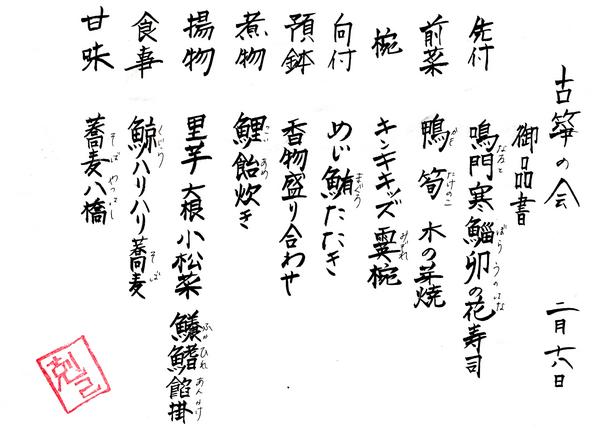 古箏の会 二月十八日
御品書
先付 鳴門寒鯔卯の花寿司
なると ぼら うのはな
前菜 鴨 筍 木の芽焼
かも たけのこ
椀 キンキキッズ霙椀
みぞれ
向付 めじ鮪たたき
まぐろ
預鉢 香物盛り合わせ
煮物 鯉飴炊き
こい あめ
揚物 里芋 大根 小松菜 鱶鰭餡掛
ふかひれ あんかけ
食事 鯨ハリハリ蕎麦
くじら そば
甘味 蕎麦八橋
そば やつはし
剋己